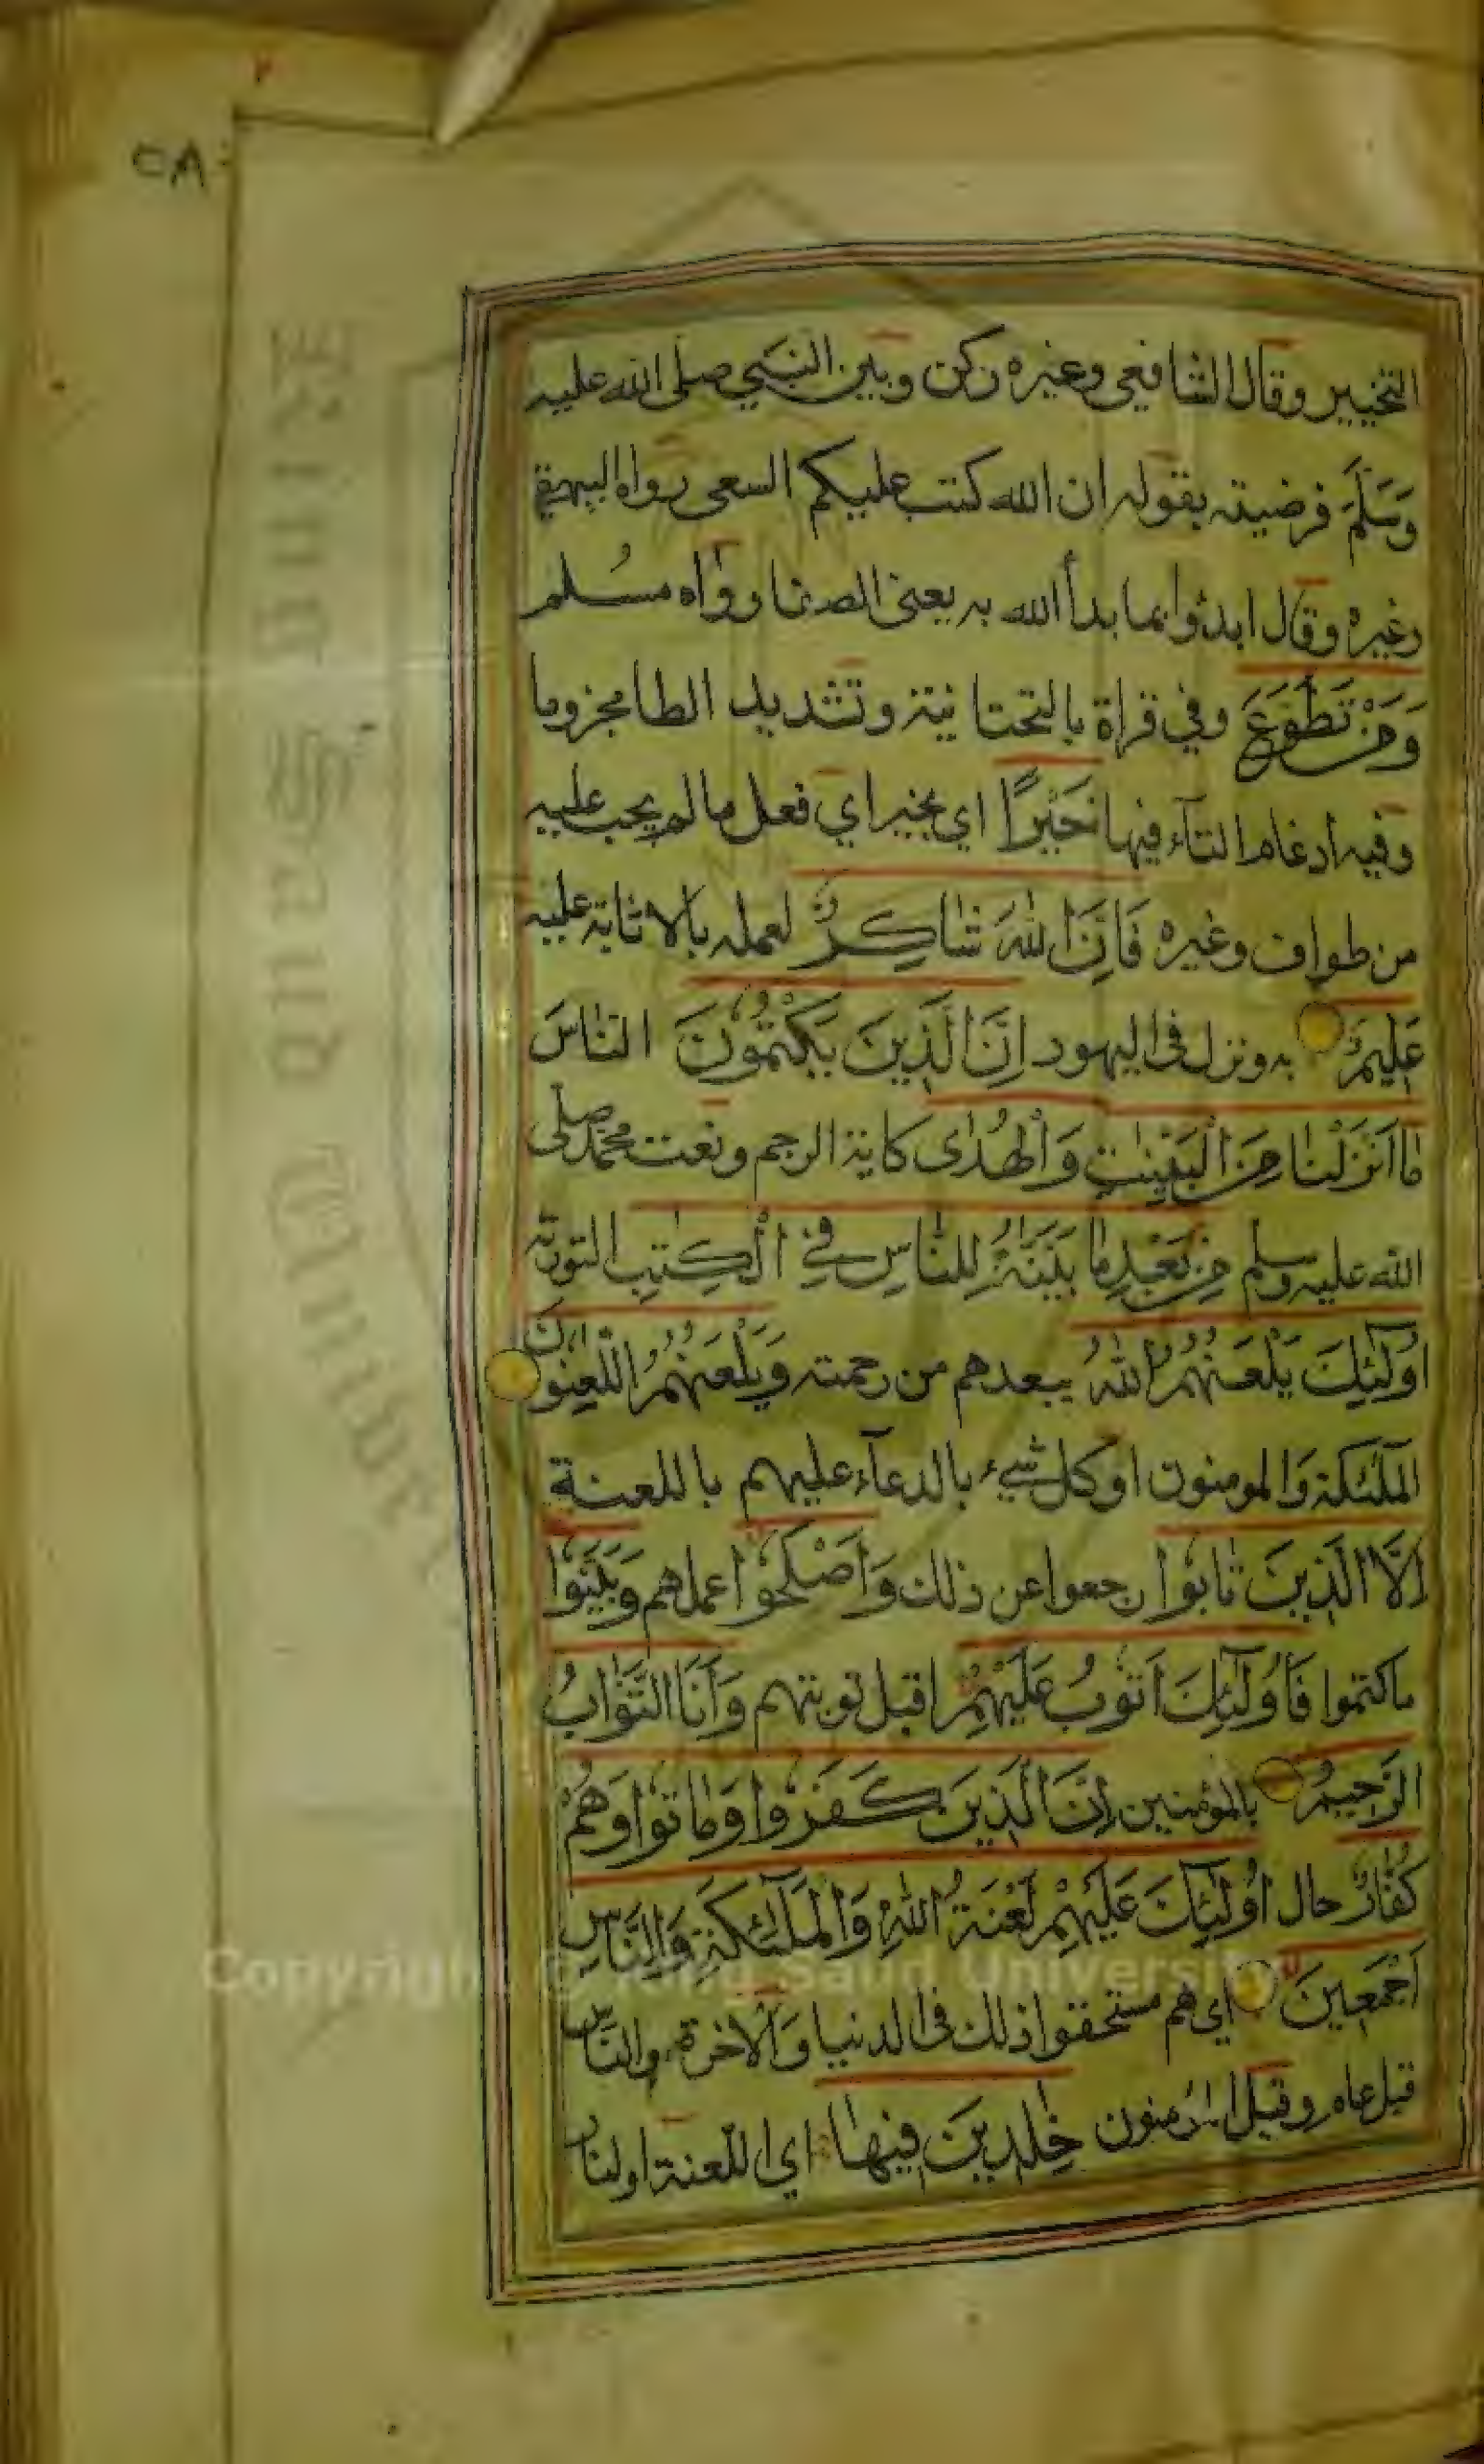 ٥٨
التخيير وقال الشافعي وغيره ركن وبين النبي صلى الله عليه
وَسَلَّمَ فرضيته بقوله ان الله كتب عليكم السعى رواه البيهقي
وغيره وقال ابدؤا بما بدأ الله به يعنى الصفا رواه مسلم
وَمَنْ تَطَوَّعَ وفي قراة بالتحتانية وتشديد الطا مجزوما
وفيه ادغام التآء فيها خَيْرًا اي بخير اي فعل ما لم يجب عليه
من طواف وغيره فَاِنَّ اللّٰهَ شَاكِرٌ لعمله بالاثابة عليه
عَلِيمٌ به ونزل فى اليهود اِنَّ الَّذِينَ يَكْتُمُونَ النَّاسَ
مَا اَنْزَلْنَا مِنَ الْبَيِّنٰتِ وَالْهُدٰى كاية الرجم ونعت محمد صلى
الله عليه وسلم مِنْ بَعْدِ مَا بَيَّنّٰهُ لِلنَّاسِ فِي الْكِتٰبِ التورية
اُولٰٓئِكَ يَلْعَنُهُمُ اللّٰهُ يبعدهم من رحمته وَيَلْعَنُهُمُ اللّٰعِنُونَ
الملٰئكة وَالمومنون او كل شيء بالدعآء عليهم باللعنة
اِلَّا الَّذِينَ تَابُوا رجعوا عن ذلك وَاَصْلَحُوا عملهم وَبَيَّنُوا
ما كتموا فَاُولٰٓئِكَ اَتُوبُ عَلَيْهِمْ اقبل توبتهم وَاَنَا التَّوَّابُ
الرَّحِيمُ بالمؤمنين اِنَّ الَّذِينَ كَفَرُوا وَمَاتُوا وَهُمْ
كُفَّارٌ حال اُولٰٓئِكَ عَلَيْهِمْ لَعْنَةُ اللّٰهِ وَالْمَلٰٓئِكَةِ وَالنَّاسِ
اَجْمَعِينَ اي هم مستحقوا ذلك فى الدنيا وَالاخرة والناس
قيل عام وقيل المؤمنون خٰلِدِينَ فِيهَا اي اللعنة او النار
Copyright © King Saud University